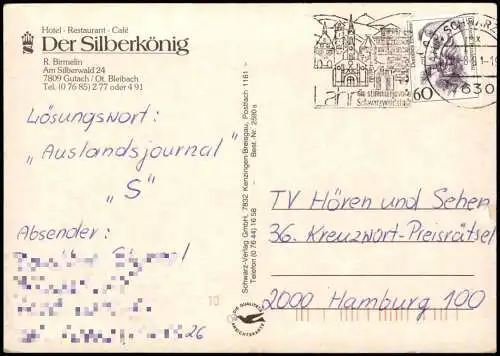 Hotel · Restaurant · Café
Der Silberkönig
R. Birmelin
Am Silberwald 24
7809 Gutach / Ot. Bleibach
Tel. (0 76 85) 2 77 oder 4 91
Lösungswort:
„Auslandsjournal"
„S"
Absender:
26
Schwarz-Verlag GmbH, 7832 Kenzingen Breisgau, Postfach 11 61 -
Telefon (0 76 44) 16 58 - Best.-Nr. 2580 a
10
DIE QUALITÄTS
ANSICHTSKARTE
SCHWARZ
60
7630
Lahr
Schwarzwaldstadt
TV Hören und Sehen
36. Kreuzwort-Preisrätsel
2000 Hamburg 100